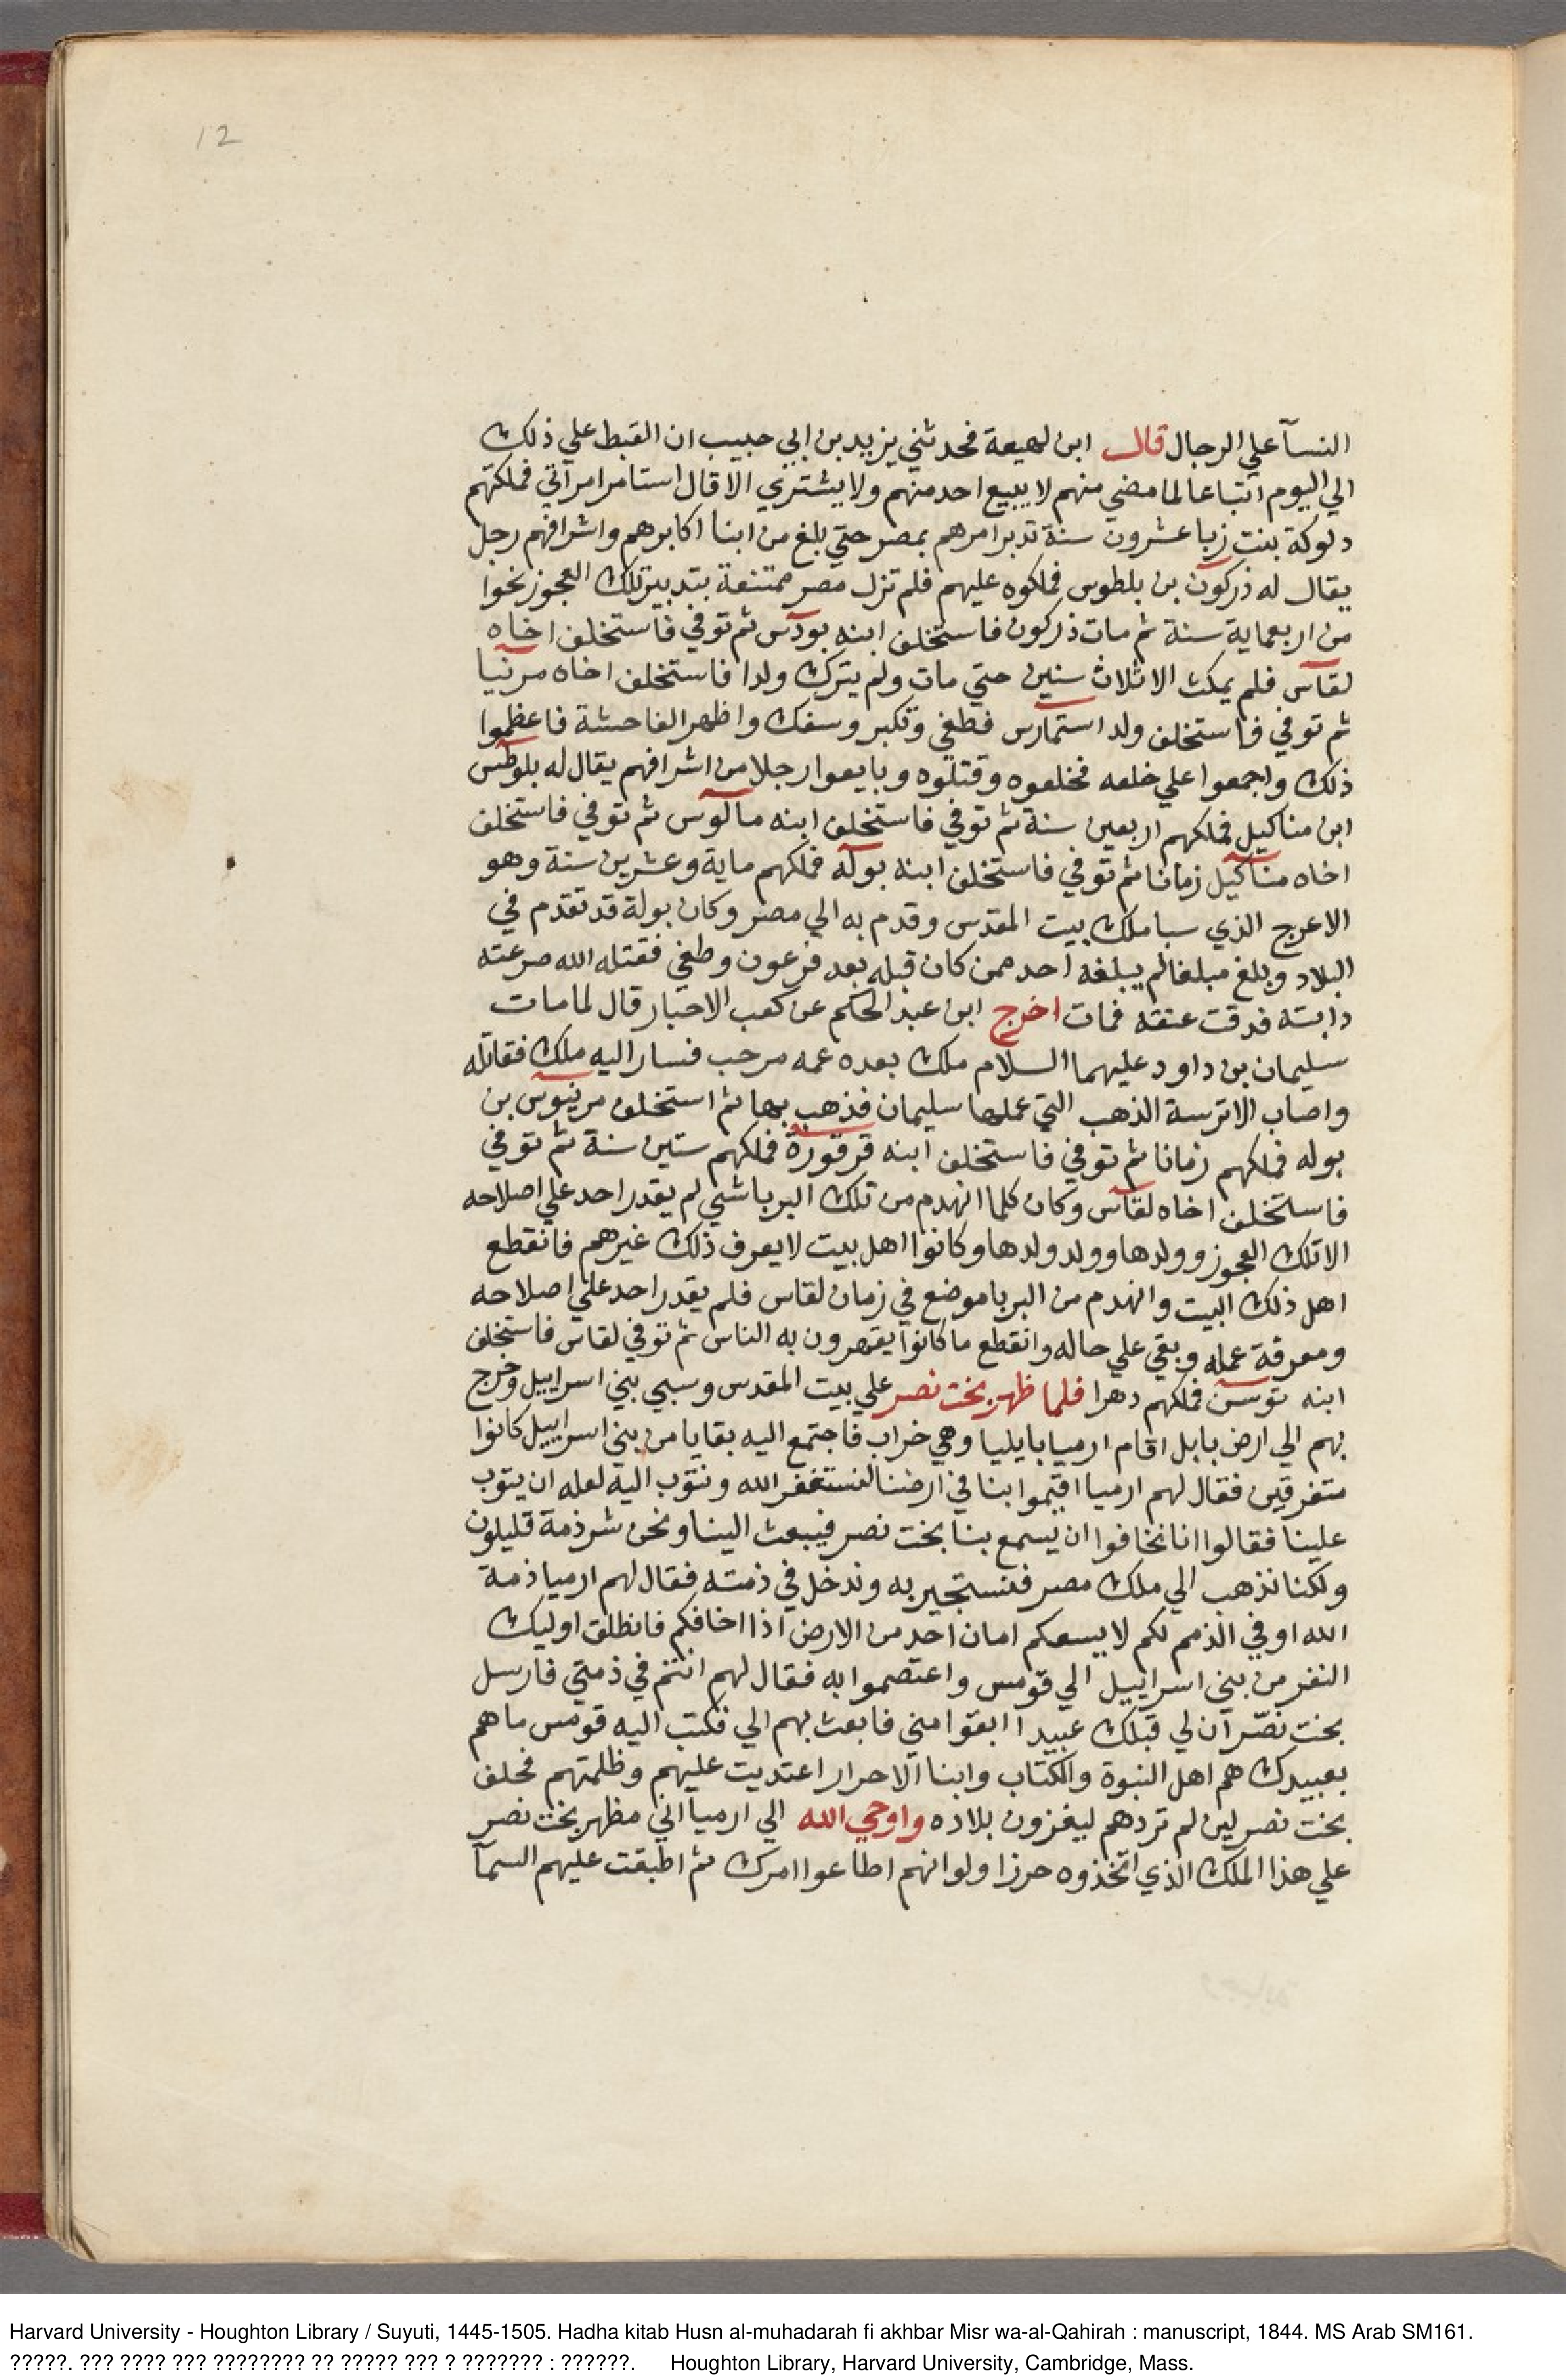 12
النسآ علي الرجال قال ابن لهيعة فحدثني يزيد بن ابي حبيب ان القبط علي ذلك
الي اليوم اتباعا لما مضي منهم لا يبيع احد منهم ولا يشتري الا قال استامر امراتي فملكتهم
دلوكة بنت زبا عشرون سنة تدبر امرهم بمصر حتي بلغ من ابنا اكابرهم واشرافهم رجل
يقال له ذركون بن بلطوس فملكوه عليهم فلم تزل مصر ممتنعة بتدبير تلك العجوز نحوا
من اربعماية سنة ثم مات ذركون فاستخلف ابنه بودس ثم توفي فاستخلف اخاه
لقاس فلم يمكث الا ثلاث سنين حتي مات ولم يترك ولدا فاستخلف اخاه مرنيا
ثم توفي فاستخلف ولد استمارس فطغي وتكبر وسفك واظهر الفاحشة فاعظموا
ذلك واجمعوا علي خلعه فخلعوه وقتلوه وبايعوا رجلا من اشرافهم يقال له بلوطس
ابن مناكيل فملكهم اربعين سنة ثم توفي فاستخلف ابنه مالوس ثم توفي فاستخلف
اخاه مناكيل زمانا ثم توفي فاستخلف ابنه بوله فملكهم ماية وعشرين سنة وهو
الاعرج الذي سبا ملك بيت المقدس وقدم به الي مصر وكان بولة قد تقدم في
البلاد وبلغ مبلغا لم يبلغه احد ممن كان قبله بعد فرعون وطغي فقتله الله صرعته
دابته فدقت عنقه فمات اخرج ابن عبد الحكم عن كعب الاحبار قال لما مات
سليمان بن داود عليهما السلام ملك بعده عمه مرحب فسار اليه ملك فقاتله
واصاب الاترسة الذهب التي عملها سليمان فذهب بها ثم استخلف مرنيوس بن
بوله فملكهم زمانا ثم توفي فاستخلف ابنه قرقورة فملكهم ستين سنة ثم توفي
فاستخلف اخاه لقاس وكان كلما انهدم من تلك البربا شي لم يقدر احد علي اصلاحه
الا تلك العجوز وولدها وولد ولدها وكانوا اهل بيت لا يعرف ذلك غيرهم فانقطع
اهل ذلك البيت وانهدم من البربا موضع في زمان لقاس فلم يقدر احد علي اصلاحه
ومعرفة عمله وبقي علي حاله وانقطع ما كانوا يقهرون به الناس ثم توفي لقاس فاستخلف
ابنه توسس فملكهم دهرا فلما ظهر بخت نصر علي بيت المقدس وسبي بني اسراييل وخرج
بهم الي ارض بابل اقام ارميا بايليا وهي خراب فاجتمع اليه بقايا من بني اسراييل كانوا
متفرقين فقال لهم ارميا اقيموا بنا في ارضنا لنستغفر الله ونتوب اليه لعله ان يتوب
علينا فقالوا انا نخافوا ان يسمع بنا بخت نصر فيبعث الينا ونحن شرذمة قليلون
ولكنا نذهب الي ملك مصر فنستجير به وندخل في ذمته فقال لهم ارميا ذمة
الله اوفي الذمم لكم لا يسعكم امان احد من الارض اذا اخافكم فانطلق اوليك
النفر من بني اسراييل الي قومس واعتصموا به فقال لهم انتم في ذمتي فارسل
بخت نصر ان لي قبلك عبيدا ابقوا مني فابعث بهم الي فكتب اليه قومس ما هم
بعبيدك هم اهل النبوة والكتاب وابنا الاحرار اعتديت عليهم وظلمتهم فحلف
بخت نصر لين لم تردهم ليغزون بلاده واوحي الله الي ارميا اني مظهر بخت نصر
علي هذا الملك الذي اتخذوه حرزا ولو انهم اطاعوا امرك ثم اطبقت عليهم السمآ
Harvard University - Houghton Library / Suyuti, 1445-1505. Hadha kitab Husn al-muhadarah fi akhbar Misr wa-al-Qahirah : manuscript, 1844. MS Arab SM161.
?????. ??? ???? ??? ???????? ?? ????? ??? ? ??????? : ??????. Houghton Library, Harvard University, Cambridge, Mass.